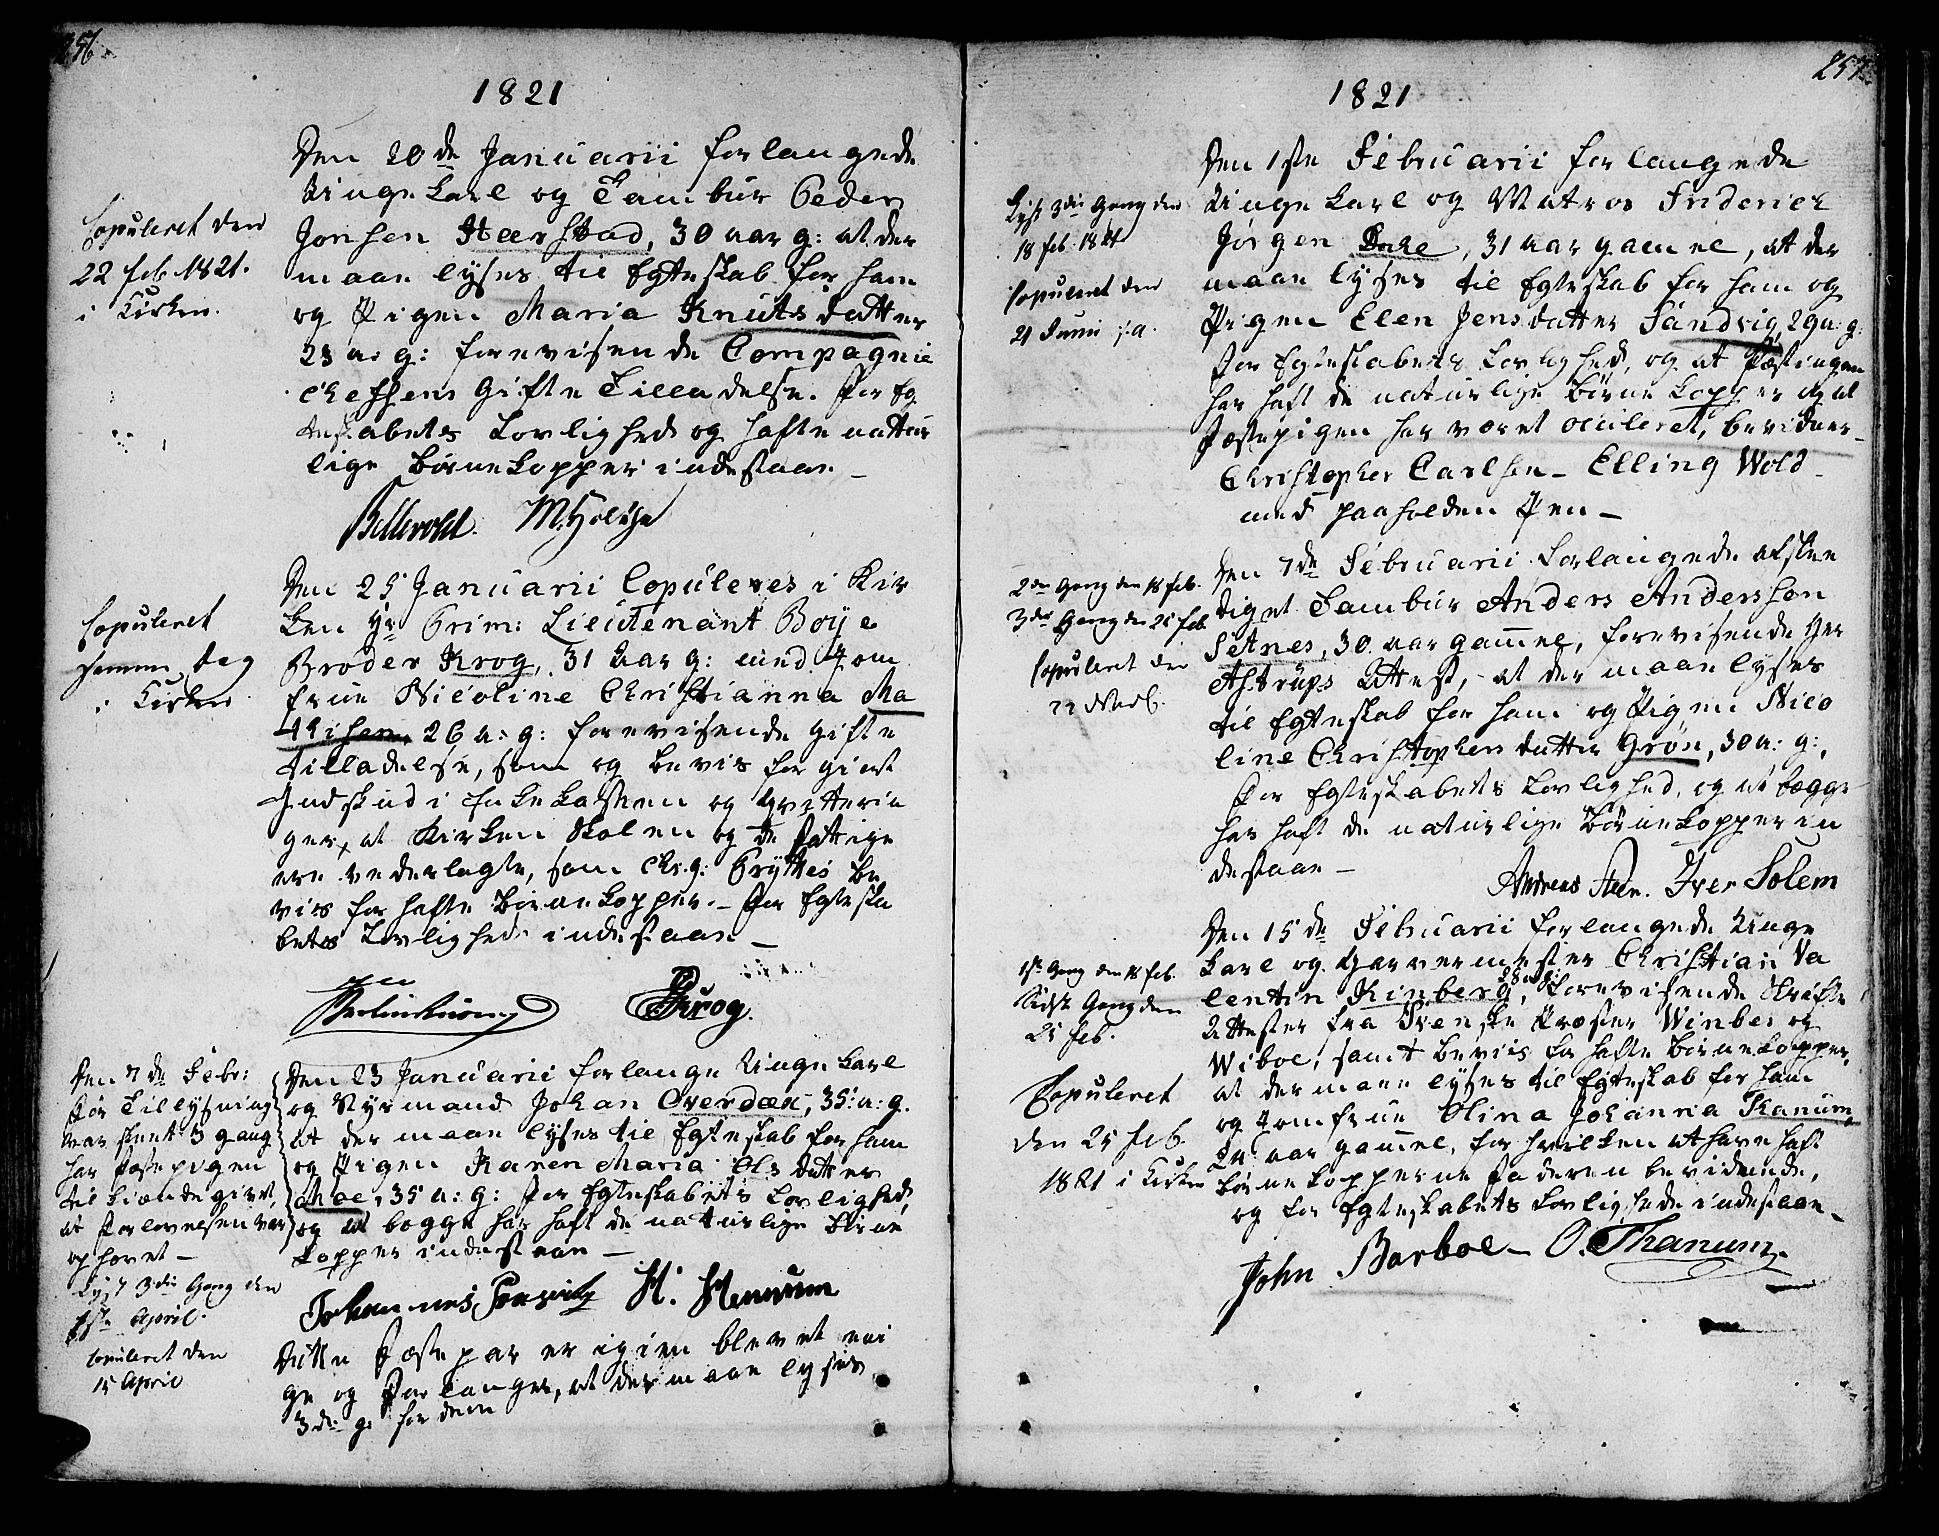 256
1821
Copuleret den
22 feb. 1821.
i Kirken.
Den 20de Januarii forlangede
Ungekarl og Tambur Peder
Jonsen Heerstad, 30 aar g: at der
maae lyses til Egteskab for ham
og Pigen Maria Knutsdatter
23 a: g: forevisende Compagnie
Cheffens Gifte Tilladelse. For Eg
teskabets Lovlighed og hafte nattur
lige Børnekopper indestaae
Bellevold. M. Holst
Copuleret
samme Dag
i Kirken
Den 25 Januarii Copuleres i Kir
ken Hr Prim: Lieutenant Boye
Broder Krog, 31 Aar g: med Jom
frue Nicoline Christianna Ma
thisen 26 a: g: forevisende Gifte
tilladelse, som og bevis for giort
Indskud i Enkekassen og Qvitterin
ger, at Kirken Skolen og de fattige
ere vederlagte, som Chr.g: Pryttes be
vis for hafte Børnekopper. For Egteska
betes Lovlighed indestaae
Krog.
Den 7de Febr:
før Tillysning
var skeet 3 gang
har Fæstepigen
til kiende givet,
at Forlovelsen var
ophøret
Lyst 3die Gang den
1ste April.
Copuleret den
15 April
Den 23 Januarii forlange Ungekarl
og Styrmand Johan Overdæn, 35: a: g.
at der maae lyses til Egteskab for ham
og Pigen Karen Maria Olsdatter
Moe, 35 a: g: For Egteskabets Lovlighed,
og at begge har haft de naturlige Børne
kopper indestaae
Johannes H. Hennum
Dette Fæstepar er igien blevet eni
ge og Forlanger, at der maae lyses
3die g. for dem
257
1821
Lyst 3die Gang den
18 feb. 1821
Copuleret den
21 Junii s.a.
Den 1ste Februarii forlangede
Ungekarl og Matros Friderich
Jørgen, 31 aar gamel, at der
maae lyses til Egteskab for ham og
Pigen Elen Jensdatter Sandvig, 29 a: g:
For Egteskabets Lovlighed, og at Fæstingen
har haft de naturlige Børne Kopper og at
Fæstepigen har været oculeret, bevidner
Christopher Carlsen – Elling Wold
med paaholden Pen –
2den Gang den 18 feb.
3die Gang den 25 feb.
Copuleret den
22 Martz.
Den 7de Februarii Forlangede afskee
diget Tambur Anders Andersson
Setnes, 30 aar gamel, forevisende Her
Astrups Attest, at der maae lyses
til Egteskab for ham og Pigen Nico
line Christophersdatter Grøn, 30 a: g:,
For Egteskabets Lovlighed, og at begge
har haft de naturlige Børnekopper in
destaae –
Andreas Iver Solem
1ste Gang den 18 feb.
Sidste Gang den
25 feb.
Copuleret
den 25 feb.
1821 i Kirken
Den 15de Februarii forlangede Unge
karl og Garvermester Christian Va
lentin Kinberg, 28 a: g:, forevisende Skrifte
Attester fra Svenske Præster Winber og
Wiboe, samt beviis for hafte Børnekopper,
at der maae lyses til Egteskab for ham
og Jomfrue Olina Johanna Kanum,
24 aar gamel, for hvilken at have haft
Børnekopperne Faderen bevidnede,
og for Egteskabets Lovlighede indestaae
John Barboe – O. Thanum.